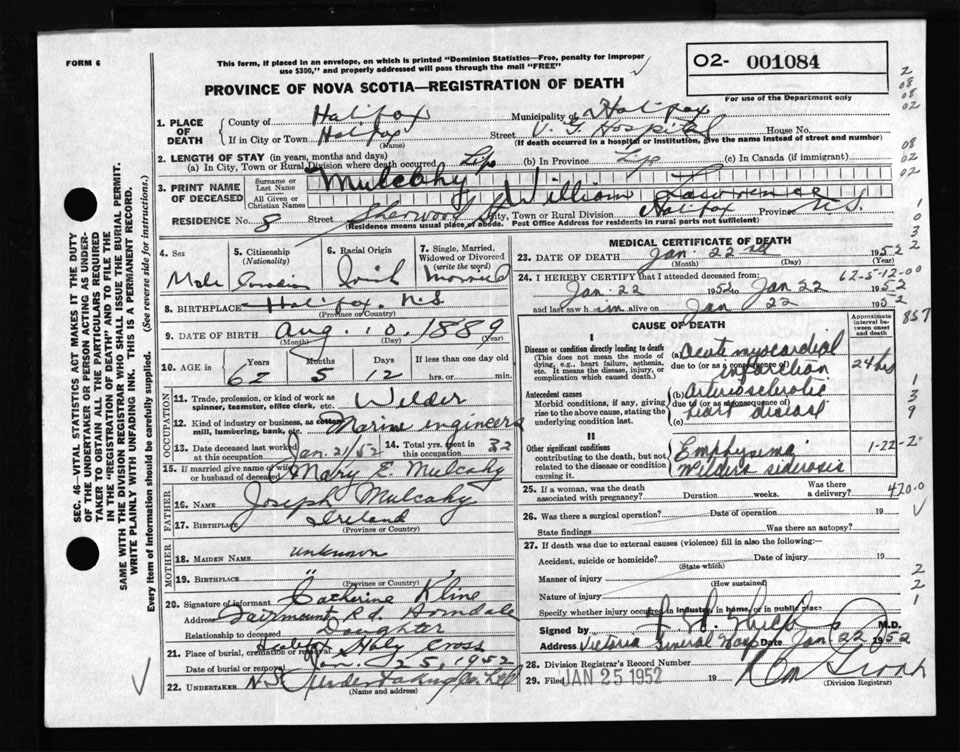 FORM 6
This form, if placed in an envelope, on which is printed "Dominion Statistics—Free, penalty for improper
use $300," and properly addressed will pass through the mail "FREE"
O2- 001084
For use of the Department only
PROVINCE OF NOVA SCOTIA—REGISTRATION OF DEATH
1. PLACE OF DEATH
County of Halifax
Municipality of Halifax
If in City or Town Halifax
(Name)
Street V. G. Hospital House No.
(If death occurred in a hospital or institution, give the name instead of street and number)
2. LENGTH OF STAY (in years, months and days)
(a) In City, Town or Rural Division where death occurred Life (b) In Province Life (c) In Canada (if immigrant)
3. PRINT NAME OF DECEASED
Surname or Last Name Mulcahy
All Given or Christian Names William Lawrence
RESIDENCE No. 8 Street Sherwood St City, Town or Rural Division Halifax Province N.S.
(Residence means usual place of abode. Post Office Address for residents in rural parts not sufficient)
4. Sex
Male
5. Citizenship
(Nationality)
Canadian
6. Racial Origin
Irish
7. Single, Married,
Widowed or Divorced
(write the word)
Married
8. BIRTHPLACE Halifax N.S.
(Province or Country)
9. DATE OF BIRTH Aug. 10, 1889
(Month) (Day) (Year)
10. AGE in
Years Months Days If less than one day old
62 5 12 hrs. or min.
OCCUPATION
11. Trade, profession, or kind of work as
spinner, teamster, office clerk, etc. Welder
12. Kind of industry or business, as cotton
mill, lumbering, bank, etc. Marine engineers
13. Date deceased last worked
at this occupation Jan. 21/52
14. Total yrs. spent in
this occupation 32
15. If married give name of wife
or husband of deceased Mary E. Mulcahy
FATHER
16. Name Joseph Mulcahy
17. Birthplace Ireland
(Province or Country)
MOTHER
18. Maiden Name unknown
19. Birthplace "
(Province or Country)
20. Signature of informant Catherine Kline
Address Fairmount Rd. Armdale
Relationship to deceased Daughter
21. Place of burial, cremation or removal Holy Cross
Date of burial or removal Jan. 25, 1952
22. UNDERTAKER N.S. Undertaking Co. Ltd
(Name and address)
MEDICAL CERTIFICATE OF DEATH
23. DATE OF DEATH Jan. 22 1952
(Month) (Day)
24. I HEREBY CERTIFY that I attended deceased from: 62-5-12-00
Jan. 22 1952 to Jan 22 1952
and last saw h im alive on Jan 22 1952
CAUSE OF DEATH
Approximate
interval be-
tween onset
and death
I
Disease or condition directly leading to death
(This does not mean the mode of
dying, e.g., heart failure, asthenia,
etc. It means the disease, injury, or
complication which caused death.)
(a) Acute myocardial
due to (or as a consequence of)
infarction
24 hrs
Antecedent causes
Morbid conditions, if any, giving
rise to the above cause, stating the
underlying condition last.
(b) Arteriosclerotic
due to (or as a consequence of)
heart disease
(c)
II
Other significant conditions
contributing to the death, but not
related to the disease or condition
causing it.
Emphysema
Welders siderosis
25. If a woman, was the death
associated with pregnancy? Duration weeks. Was there
a delivery?
470.0
26. Was there a surgical operation? Date of operation 19
State findings Was there an autopsy?
27. If death was due to external causes (violence) fill in also the following:—
Accident, suicide or homicide? Date of injury 19
(State which)
Manner of injury
(How sustained)
Nature of injury
Specify whether injury occurred in industry, in home, or in public place:
Signed by M.D.
Address Victoria General Hosp Date Jan 22 1952
28. Division Registrar's Record Number
29. Filed JAN 25 1952
(Division Registrar)
SEC. 46—VITAL STATISTICS ACT MAKES IT THE DUTY
OF THE UNDERTAKER OR PERSON ACTING AS UNDER-
TAKER TO OBTAIN ALL THE PARTICULARS REQUIRED
IN THE "REGISTRATION OF DEATH" AND TO FILE THE
SAME WITH THE DIVISION REGISTRAR WHO SHALL ISSUE THE BURIAL PERMIT.
WRITE PLAINLY WITH UNFADING INK. THIS IS A PERMANENT RECORD.
Every item of information should be carefully supplied. (See reverse side for instructions.)
2
08
08
02
08
02
02
1
0
3
2
857
1
3
9
2
2
1